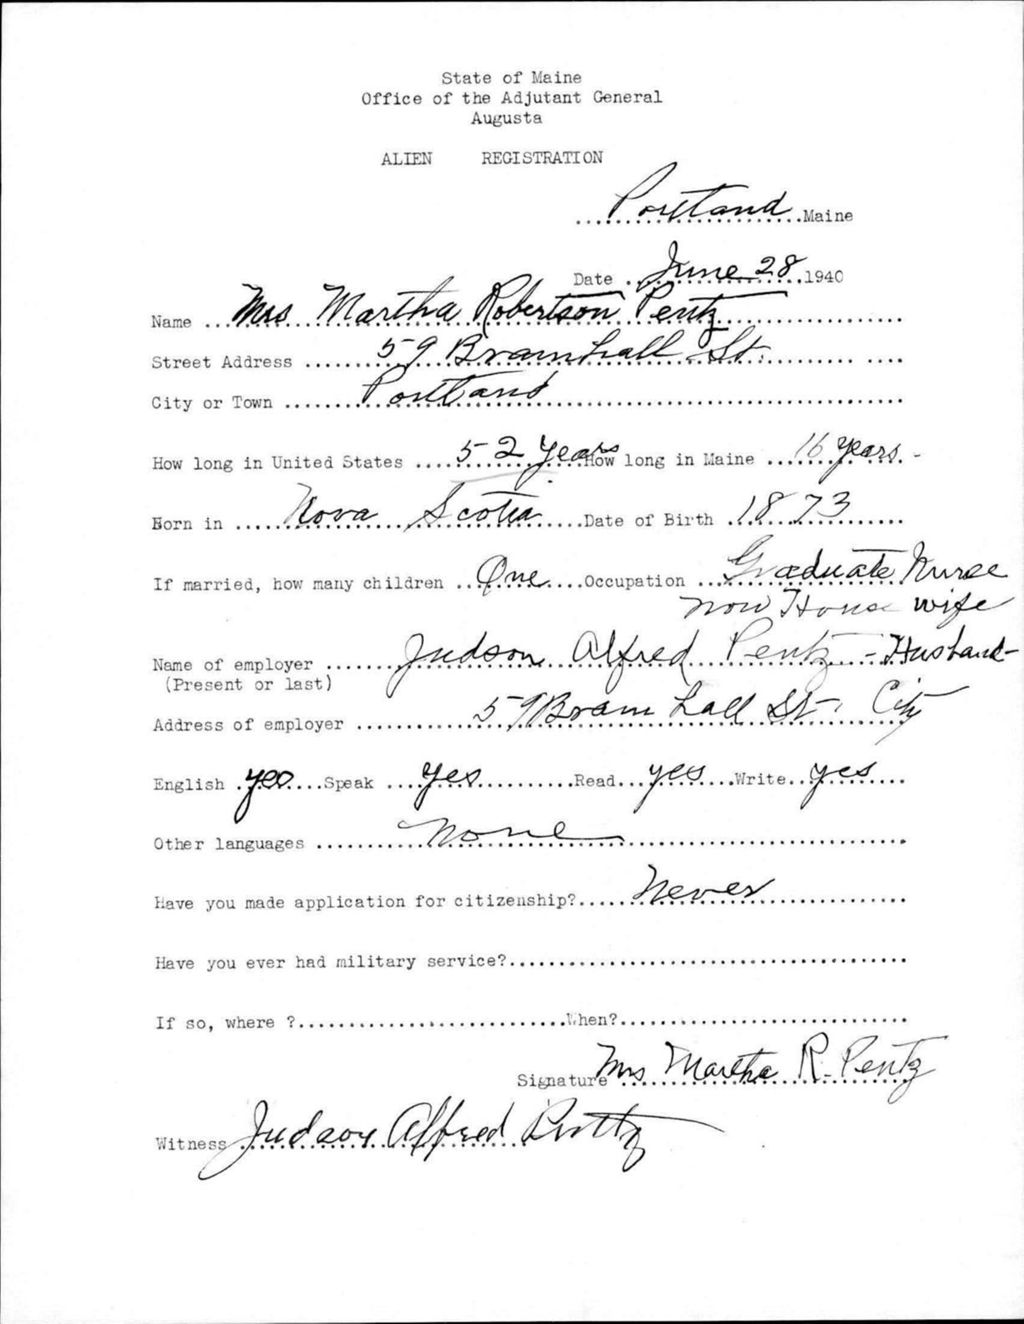 State of Maine
Office of the Adjutant General
Augusta
ALIEN REGISTRATION
Portland Maine
Date June 28 1940
Name Mrs Martha Robertson Pentz
Street Address 59 Bramhall St.
City or Town Portland
How long in United States 52 years How long in Maine 16 years -
Born in Nova Scotia Date of Birth 1873
If married, how many children One Occupation Graduate Nurse
now House wife
Name of employer Judson Alfred Pentz - Husband -
(Present or last)
Address of employer 59 Bramhall St. City
English yes Speak yes Read yes Write yes
Other languages None
Have you made application for citizenship? Never
Have you ever had military service?
If so, where ? When?
Signature Mrs Martha R. Pentz
Witness Judson Alfred Pentz